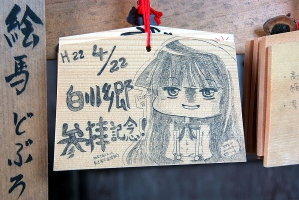 絵馬 どぶろ
H22 4/22
白川郷
参拝記念!